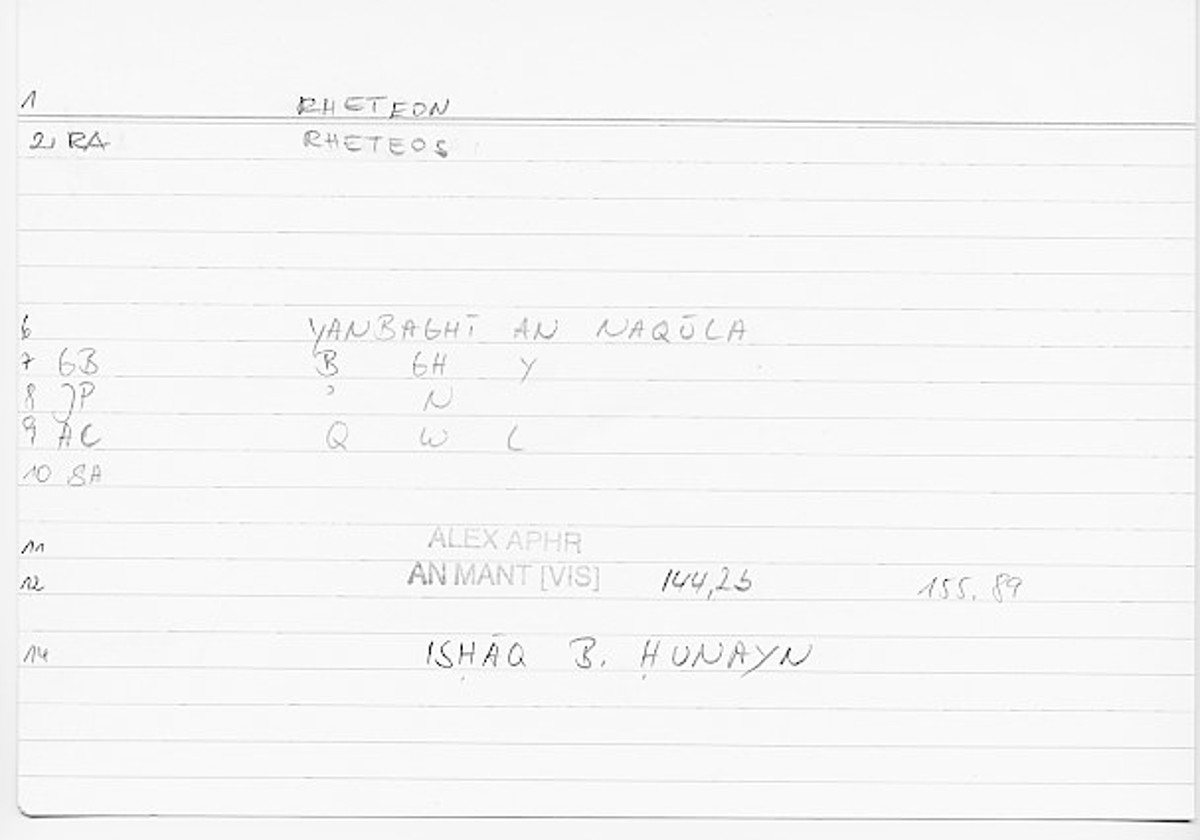 1 RHETEON
2, RA RHETEOS
6 YANBAGHĪ AN NAQŪLA
7 GB B GH Y
8 JP ʾ N
9 AC Q W L
10 SA
11 ALEX APHR
12 AN MANT [VIS] 144,26 155.89
14 ISḤĀQ B. ḤUNAYN